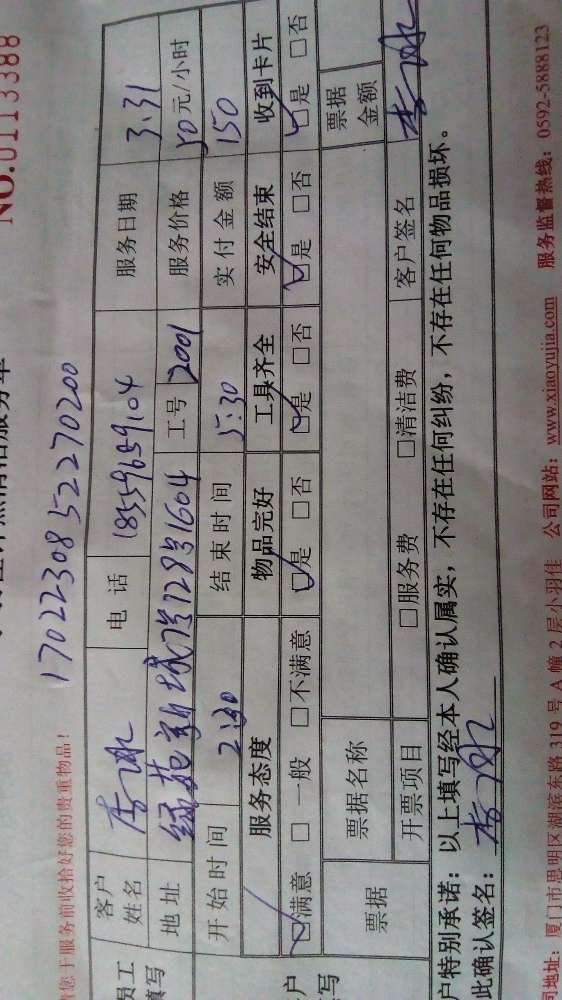 NO.0113388
17022308522270200
请您于服务前收拾好您的贵重物品!
客户姓名 李冰 电话 18559659104 服务日期 3.31
地址 绿苑新城7号1604 工号 2001 服务价格 30元/小时
开始时间 2:30 结束时间 5:30 实付金额 150
服务态度 物品完好 工具齐全 安全结束 收到卡片
☑满意 □一般 □不满意 ☑是 □否 ☑是 □否 ☑是 □否 ☑是 □否
票据 票据名称 票据金额
开票项目 □服务费 □清洁费 客户签名 李冰
户特别承诺：以上填写经本人确认属实，不存在任何纠纷，不存在任何物品损坏。
此确认签名：李冰
司地址：厦门市思明区湖滨东路319号A幢2层小羽佳 公司网站：www.xiaoyujia.com 服务监督热线：0592-5888123